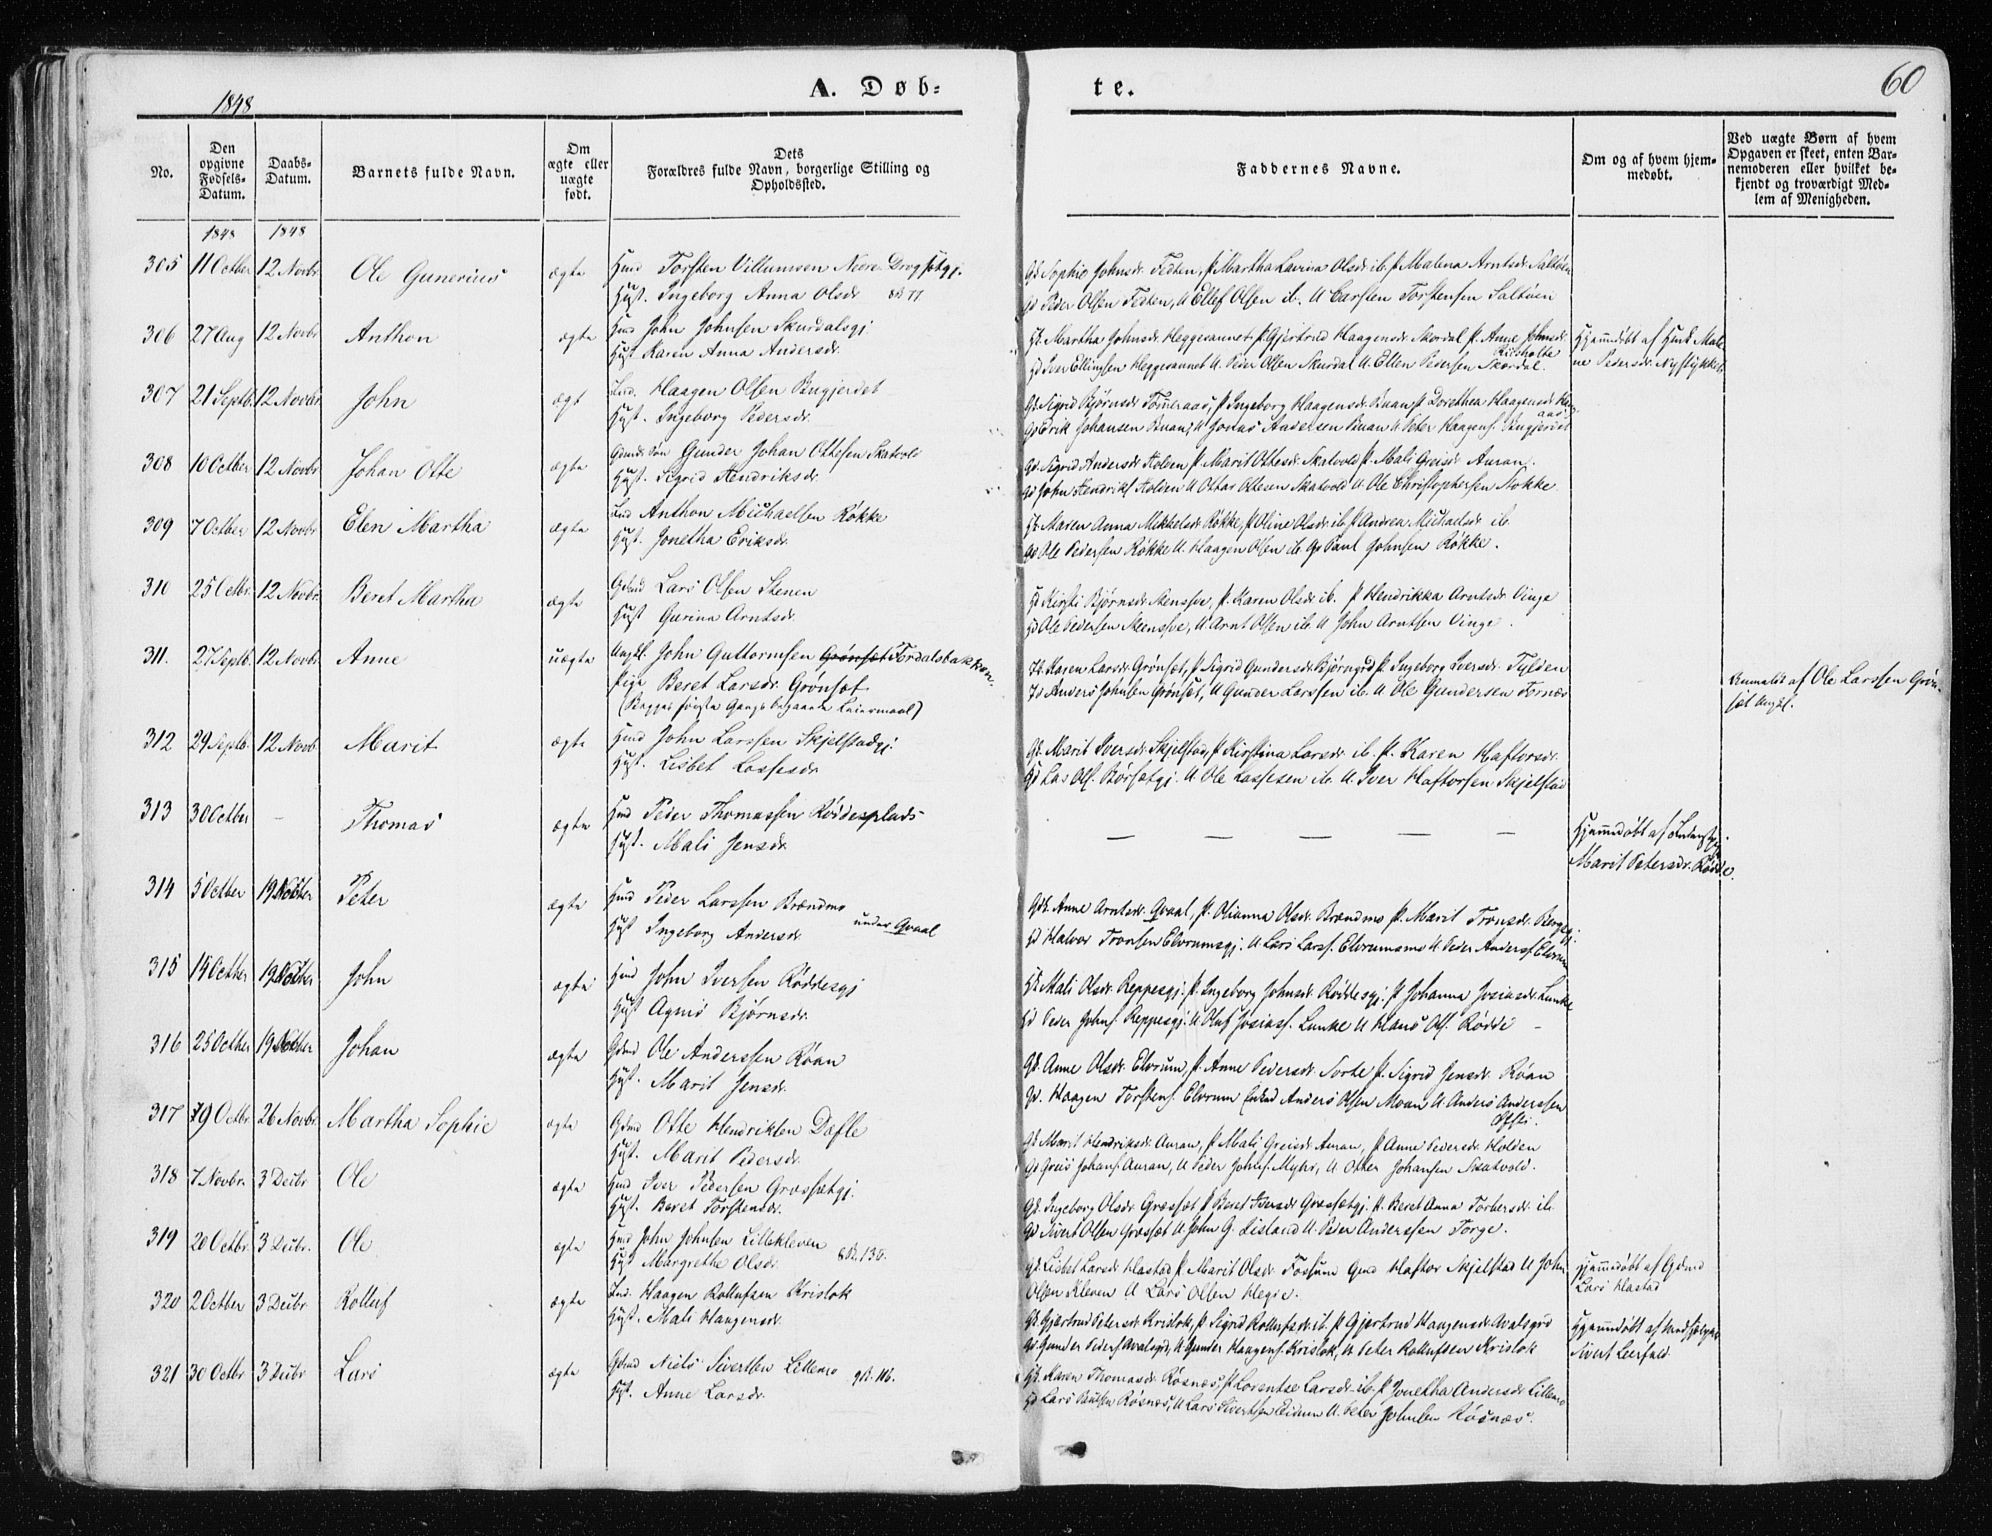 1848
A. Døb-
te.
60
No.
Den opgivne Fødsels-Datum.
Daabs-Datum.
Barnets fulde Navn.
Om ægte eller uægte født.
Dets Forældres fulde Navn, borgerlige Stilling og Opholdsted.
Faddernes Navne.
Om og af hvem hjem-medøbt.
Ved uægte Børn af hvem Opgaven er skeet, enten Bar-nemoderen eller hvilket be-kjendt og troværdigt Med-lem af Menigheden.
1848 1848
305 11 Octber 12 Novbr Ole Gunerius ægte Hmd Torsten Villumsen Nere
Hust. Ingeborg Anna Olsdr
Peder Olsen Festen, U Ellef Olsen ib. U Carsten Torstensen Saltøien
306 27 Aug 12 Novbr Anthon ægte Hmd John Johnsen Skurdalsgj
Hust. Karen Anna Andersdr.
Martha Johnsdr. Heggesannet P. Gjertrud Haagensdr. Skordal P. Anne Johnsdr.
Iver Ellingsen Heggesannet U. Peder Olsen Skurdal U. Ellen Pedersen Skordal.
Hjemmedøbt af
Pedersdr. Nystykket
307 21 Septb. 12 Novbr John ægt Ind. Haagen Olsen Bugjerdet
Hust. Ingeborg Pedersdr.
Sigrid Bjørnsdr P Ingeborg Haagensdr Buan P Dorethea Haagensdr
Erik Johansen Buan, U Jonas Andersen Buan U Peter Haagens. Bugjerdet
308 10 Octber 12 Novbr Johan Otte ægte Gunder Johan Ottesen Skatvold
Hust. Sigrid Hendriksdr.
Gd. Sigrid Andersdr Holden P. Marit Ottesdr. Skatvold P. Mali Greisdr Auran.
John Hendriks Holden U Ottar Ottesen Skatvold U. Ole Christophersen Nokke
309 7 Octber 12 Novbr Elen Martha ægte Ind Anthon Michaelsen Røkke
Hust. Jonetha Eriksdr.
Maren Anna Mikkelsdr Røkke, P Oline Olsdr ib P Andrea Michaelsdr ib.
Ole Pedersen Røkke U. Haagen Olsen ib. Paul Johnsen Røkke.
310 25 Octbr. 12 Novbr. Beret Martha ægte Gdmd Lars Olsen Stenen
Hust Gurina Arntsdr.
Kirsti Bjørnsdr P. Karen Olsdr ib. P Hendrikka Arntsdr. Vinge
Ole Pedersen U Arnt Olsen ib. U John Arntsen Vinge.
311. 27 Septb. 12 Novbr. Anne uægte Ungkl. John Guttormsen Grønset Tordalsbakken.
Pige Beret Larsdr. Grønset
(Begges første Gangs begaaede Leiermaal)
Karen Larsdr. Grønset, P Sigrid Gundersdr P. Ingeborg Iversdr. Tylden
Anders Johnsen Grønset, U Gunder Larssen ib. U Ole Gundersen Fornæs
Anmeldt af Ole Larssen Grøn-
set Ungkl.
312 29 Septb. 12 Novb Marit ægte Hmd John Larssen Skjelstadgj.
Hust. Lisbet Lassesdr
Marit Iversdr. Skjelstad, P Kirstina Larsdr ib. P. Karen Haftorsdr.
Børsætgj. U Ole Lassesen ib. U Iver Haftorsen Skjelstad
313 30 Octber — Thomas ægte Hmd Peder Thomassen Røddesplads
Hust. Mali Jensdr.
— — — — —
Hjemmedøbt af
Marit Petersdr. Rødde.
314 5 Octber 19 Novber Peter ægte Hmd Peder Larssen Brændmo
Hust Ingeborg Andersdr. under Qvaal
Anne Arntsdr. Qvaal, P. Olianna Olsdr. Brændmo P. Marit Tronsdr.
Halvor Tronsen Elvrumsgj. U Lars Larss. Elvrumsmo U Peder Anderss. Elvrum
315 14 Octber 19 Novber John ægte Hmd John Iversen Røddesgj
Hust Agnis Bjørnsdr.
Mali Olsdr. Reppesgj. P. Ingeborg Johnsdr. Røddesgj. P Johanna Josiasdr. Lunke
Peder Johns. Reppesgj. U Oluf Josiass. Lunke U Hans Ols. Rødde —
316 25 Octber 19 Novber Johan ægte Gdmd Ole Anderssen Røan
Hust. Marit Jensdr.
Gd. Anne Olsdr. Elvrum, P. Anne Pedersdr. Sorte P. Sigrid Jensdr. Røan
Haagen Torstens. Elvrum Anders Olsen Moan U. Anders Anderssen
317 19 Octbr. 26 Novbr. Martha Sophie ægte Gdmd Otte Hendriksen Dæfle
Hust. Marit Pedersdr.
Gd. Marit Hendriksdr. Auran, P. Mali Greisdr Auran, P. Anne Pedersdr. Holden
Greis Johans. Auran, U Peder Johns. Myhr, U Otter Johansen Skatvold.
318 7 Novbr. 3 Decbr Ole ægte Hmd Iver Pedersen Græssætgj.
Hust. Beret Torstensdr.
Gd. Ingeborg Olsdr. Græsset P Beret Iversdr Græssætgj. P. Beret Anna Torbersdr. ib
Sivert Olsen Græsset U John G. U. Peder Anderssen Forge.
319 20 Octbr. 3 Decbr. Ole ægte Hmd John Johnsen Lillekleven
Hust Margrethe Olsdr.
Lisbet Larsdr Hastad P. Marit Olsdr. Fossum Haftor Skjelstad U John
Olsen Kleven U Lars Olsen Hegie.
Hjemmedøbt af Gdmd
Lars Hastad
320 2 Octber 3 Decbr Rolluf ægte Ind. Haagen Rollufsen Krislok
Hust. Mali Haagensdr.
Gjertrud Petersdr Krislok, P. Sigrid Rollufsdr. ib. P Gjertrud Haagensdr. Avalsgrd
Gunder Peders Avalsgd, U Gunder Haagens. Krislok, U Peter Rollufsen Krislok
Hjemmedøbt af
Sivert Leerfald.
321 30 Octbr 3 Decbr Lars ægte Gdmd Niels Sivertsen Lillemo
Hust. Anne Larsdr.
Karen Thomasdr. Røsnæs, P Lorentse Larsdr. ib. P Jonetha Andersdr Lillemo
Lars Røsnæs, U Lars Sivertsen U. Peter Johnsen Røsnæs.